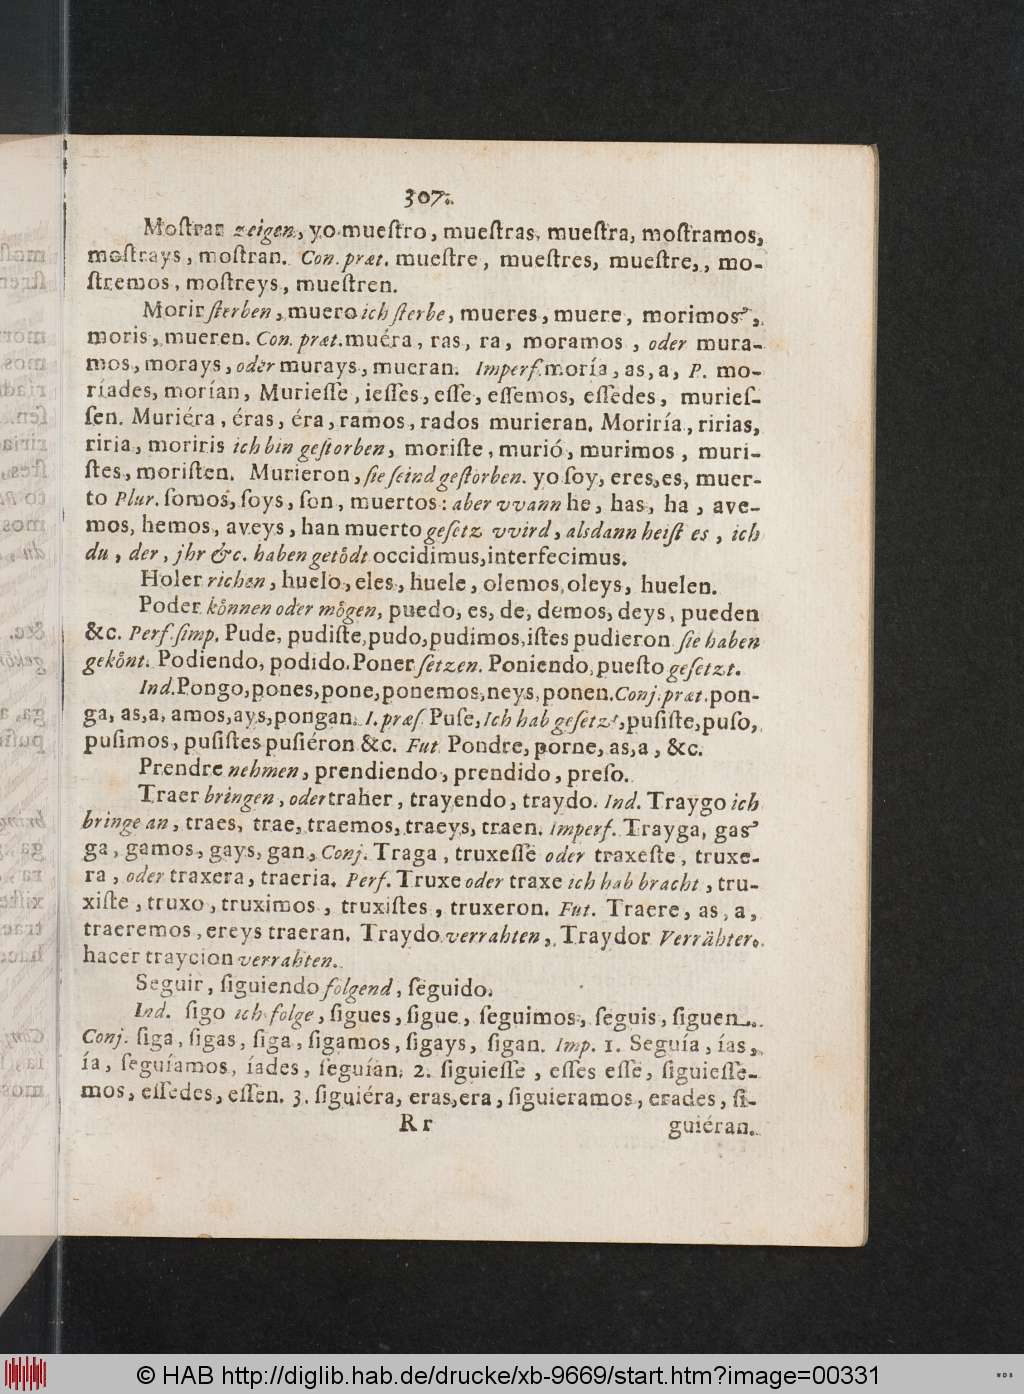 307.
Moſtrar zeigen, yo mueſtro, mueſtras, mueſtra, moſtramos,
moſtrays, moſtran. Con. præt. mueſtre, mueſtres, mueſtre,, mo-
ſtremos, moſtreys, mueſtren.
Morir ſterben, muero ich ſterbe, mueres, muere, morimos,
moris, mueren. Con. præt. muéra, ras, ra, moramos, oder mura-
mos, morays, oder murays, mueran. Imperf. moría, as, a, P. mo-
ríades, morían, Murieſſe, ieſſes, eſſe, eſſemos, eſſedes, murieſ-
ſen. Muriéra, éras, éra, ramos, rados murieran. Moriría, ririas,
riria, moriris ich bin geſtorben, moriſte, murió, murimos, muri-
ſtes, moriſten. Murieron, ſie ſeind geſtorben. yo ſoy, eres, es, muer-
to Plur. ſomos, ſoys, ſon, muertos: aber vvann he, has, ha, ave-
mos, hemos, aveys, han muerto geſetz vvird, alsdann heiſt es, ich
du, der, jhr &c. haben getoͤdt occidimus, interfecimus.
Holer richen, huelo, eles, huele, olemos, oleys, huelen.
Poder koͤnnen oder moͤgen, puedo, es, de, demos, deys, pueden
&c. Perf. ſimp. Pude, pudiſte, pudo, pudimos, iſtes pudieron ſie haben
gekoͤnt. Podiendo, podido. Poner ſetzen. Poniendo, pueſto geſetzt.
Ind. Pongo, pones, pone, ponemos, neys, ponen. Conj. præt. pon-
ga, as, a, amos, ays, pongan. I. præſ. Puſe, Ich hab geſetzt, puſiſte, puſo,
puſimos, puſiſtes puſiéron &c. Fut Pondre, porne, as, a, &c.
Prendre nehmen, prendiendo, prendido, preſo.
Traer bringen, oder traher, trayendo, traydo. Ind. Traygo ich
bringe an, traes, trae, traemos, traeys, traen. Imperf. Trayga, gas
ga, gamos, gays, gan, Conj. Traga, truxeſſe oder traxeſte, truxe-
ra, oder traxera, traeria. Perf. Truxe oder traxe ich hab bracht, tru-
xiſte, truxo, truximos, truxiſtes, truxeron. Fut. Traere, as, a,
traeremos, ereys traeran. Traydo verrahten, Traydor Verrähter.
hacer traycion verrahten.
Seguir, ſiguiendo folgend, ſeguido.
Ind. ſigo ich folge, ſigues, ſigue, ſeguimos, ſeguis, ſiguen.
Conj. ſiga, ſigas, ſiga, ſigamos, ſigays, ſigan. Imp. 1. Seguía, ías,
ía, ſeguíamos, íades, ſeguían. 2. ſiguieſſe, eſſes eſſe, ſiguieſſe-
mos, eſſedes, eſſen. 3. ſiguiéra, eras, era, ſiguieramos, erades, ſi-
R r guiéran.
© HAB http://diglib.hab.de/drucke/xb-9669/start.htm?image=00331